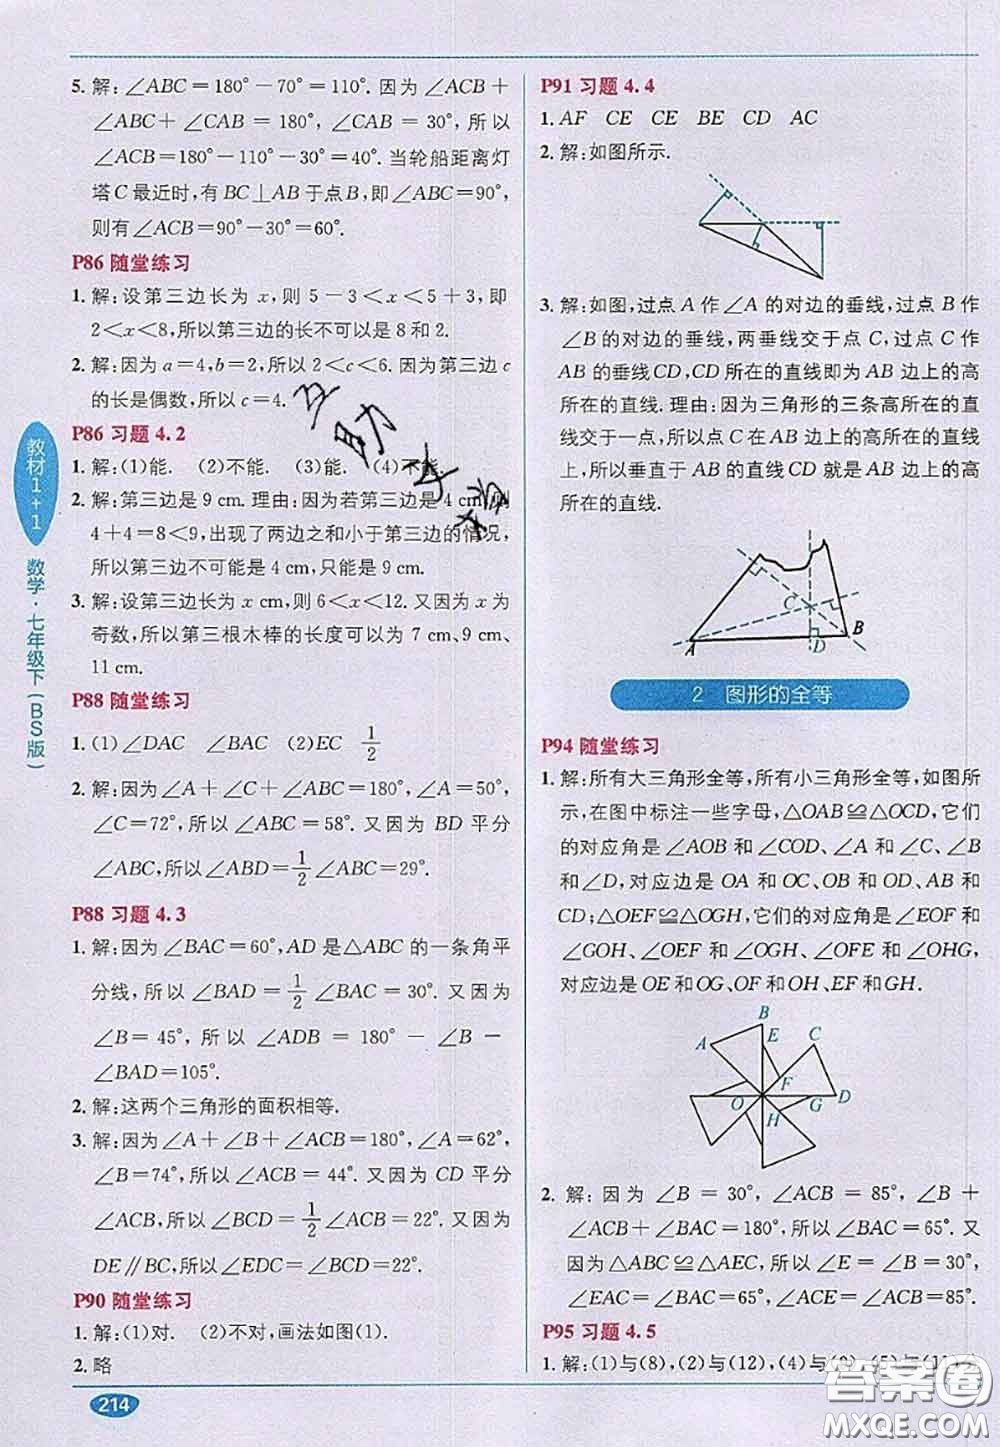 5. 解: ∠ABC＝180°－70°＝110°. 因为∠ACB＋
∠ABC＋∠CAB＝180°, ∠CAB＝30°, 所以
∠ACB＝180°－110°－30°＝40°. 当轮船距离灯
塔C最近时, 有BC⊥AB于点B, 即∠ABC＝90°,
则有∠ACB＝90°－30°＝60°.
P86 随堂练习
1. 解: 设第三边长为 x, 则 5－3＜x＜5＋3, 即
2＜x＜8, 所以第三边的长不可以是 8 和 2.
2. 解: 因为 a＝4, b＝2, 所以 2＜c＜6. 因为第三边 c
的长是偶数, 所以 c＝4.
P86 习题 4.2
1. 解: (1)能. (2)不能. (3)能. (4)不能.
2. 解: 第三边是 9 cm. 理由: 因为若第三边是 4 cm, 则
4＋4＝8＜9, 出现了两边之和小于第三边的情况,
所以第三边不可能是 4 cm, 只能是 9 cm.
3. 解: 设第三边长为 x cm, 则 6＜x＜12. 又因为 x 为
奇数, 所以第三根木棒的长度可以为 7 cm, 9 cm,
11 cm.
P88 随堂练习
1. (1)∠DAC ∠BAC (2)EC 1/2
2. 解: 因为∠A＋∠C＋∠ABC＝180°, ∠A＝50°,
∠C＝72°, 所以∠ABC＝58°. 又因为 BD 平分
∠ABC, 所以∠ABD＝1/2∠ABC＝29°.
P88 习题 4.3
1. 解: 因为∠BAC＝60°, AD 是△ABC 的一条角平
分线, 所以∠BAD＝1/2∠BAC＝30°. 又因为
∠B＝45°, 所以∠ADB＝180°－∠B－
∠BAD＝105°.
2. 解: 这两个三角形的面积相等.
3. 解: 因为∠A＋∠B＋∠ACB＝180°, ∠A＝62°,
∠B＝74°, 所以∠ACB＝44°. 又因为 CD 平分
∠ACB, 所以∠BCD＝1/2∠ACB＝22°. 又因为
DE∥BC, 所以∠EDC＝∠BCD＝22°.
P90 随堂练习
1. 解: (1)对. (2)不对, 画法如图(1).
2. 略
P91 习题 4.4
1. AF CE CE BE CD AC
2. 解: 如图所示.
3. 解: 如图, 过点 A 作∠A 的对边的垂线, 过点 B 作
∠B 的对边的垂线, 两垂线交于点 C, 过点 C 作
AB 的垂线CD, CD 所在的直线即为 AB 边上的高
所在的直线. 理由: 因为三角形的三条高所在的直
线交于一点, 所以点 C 在 AB 边上的高所在的直线
上, 所以垂直于 AB 的直线CD 就是 AB 边上的高
所在的直线.
C
A
D
B
2 图形的全等
P94 随堂练习
1. 解: 所有大三角形全等, 所有小三角形全等, 如图所
示, 在图中标注一些字母, △OAB≌△OCD, 它们
的对应角是∠AOB 和∠COD、∠A 和∠C、∠B
和∠D, 对应边是 OA 和 OC、OB 和 OD、AB 和
CD; △OEF≌△OGH, 它们的对应角是∠EOF 和
∠GOH、∠OEF 和∠OGH、∠OFE 和∠OHG,
对应边是 OE 和 OG、OF 和 OH、EF 和 GH.
B
E
A
C
F
O
G
D
H
2. 解: 因为∠B＝30°, ∠ACB＝85°, ∠B＋
∠ACB＋∠BAC＝180°, 所以∠BAC＝65°. 又
因为△ABC≌△AEC, 所以∠E＝∠B＝30°,
∠EAC＝∠BAC＝65°, ∠ACE＝∠ACB＝85°.
P95 习题 4.5
1. 解: (1)与(8), (2)与(12), (4)与(9), (5)与(11),
教材1+1
数学·七年级下(BS版)
214
答案圈
MXQE.COM